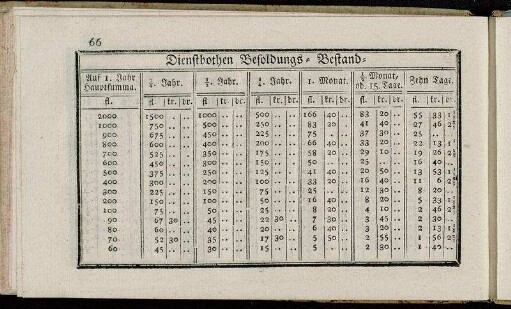 66
Dienstbothen Besoldungs- Bestand-
Auf 1. Jahr Hauptsumma. ¾. Jahr. ½. Jahr. ¼. Jahr. 1. Monat. ½ Monat, od. 15. Tage. Zehn Tage.
fl. fl. kr. dr. fl. kr. dr. fl. kr. dr. fl. kr. dr. fl. kr. dr. fl. kr.
2000 1500 .. .. 1000 .. .. 500 .. .. 166 40 .. 83 20 .. 55 33
1000 750 .. .. 500 .. .. 250 .. .. 83 20 .. 41 40 .. 27 46
900 675 .. .. 450 .. .. 225 .. .. 75 .. .. 37 30 .. 25 .. ..
800 600 .. .. 400 .. .. 200 .. .. 66 40 .. 33 20 .. 22 13
700 525 .. .. 350 .. .. 175 .. .. 58 20 .. 29 10 .. 19 26
600 450 .. .. 300 .. .. 150 .. .. 50 .. .. 25 .. .. 16 40 ..
500 375 .. .. 250 .. .. 125 .. .. 41 40 .. 20 50 .. 13 53
400 300 .. .. 200 .. .. 100 .. .. 33 20 .. 16 40 .. 11 6
300 225 .. .. 150 .. .. 75 .. .. 25 .. .. 12 30 .. 8 20 ..
200 150 .. .. 100 .. .. 50 .. .. 16 40 .. 8 20 .. 5 33
100 75 .. .. 50 .. .. 25 .. .. 8 20 .. 4 10 .. 2 46
90 67 30 .. 45 .. .. 22 30 .. 7 30 .. 3 45 .. 2 30 ..
80 60 .. .. 40 .. .. 20 .. .. 6 40 .. 3 20 .. 2 13
70 52 30 .. 35 .. .. 17 30 .. 5 50 .. 2 55 .. 1 56
60 45 .. .. 30 .. .. 15 .. .. 5 .. .. 2 30 .. 1 40 ..